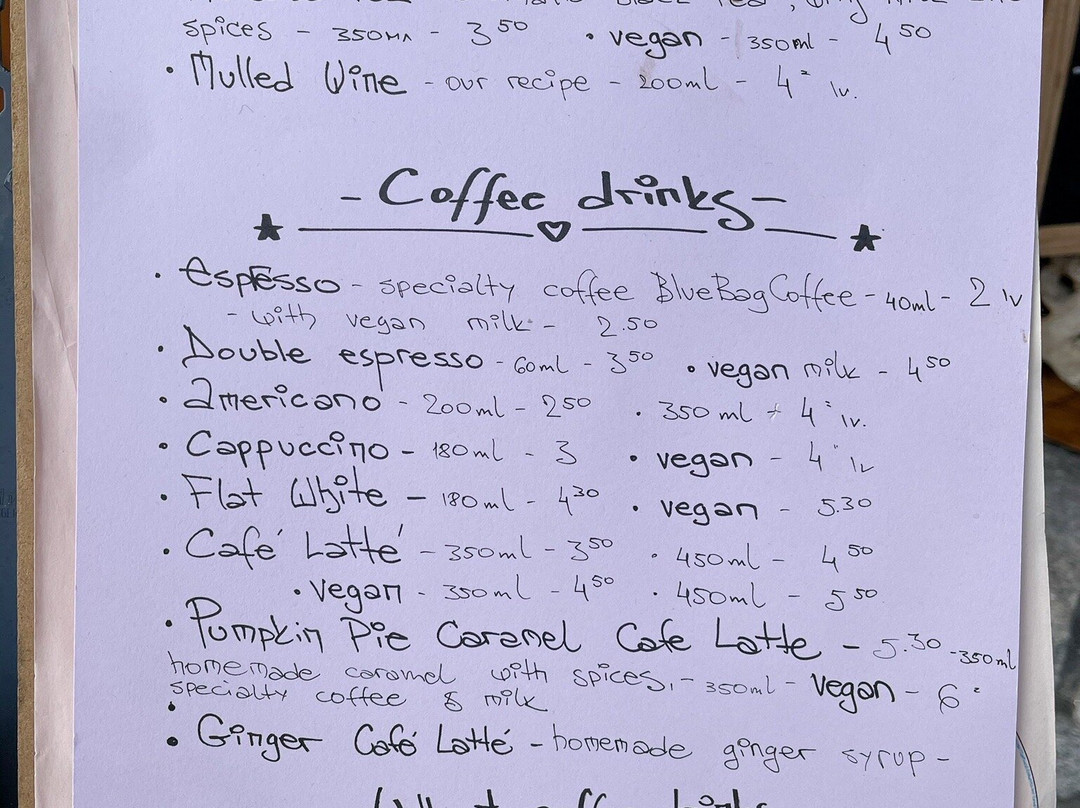 spices - 350мл - 3 50 • vegan - 350ml - 4 50
• Mulled Wine - our recipe - 200ml - 4 lv.
- Coffee drinks -
• Espresso - specialty coffee BlueBagCoffee - 40ml - 2 lv
- with vegan milk - 2.50
• Double espresso - 60ml - 3 50 • vegan milk - 4 50
• americano - 200ml - 2 50 • 350 ml - 4 lv.
• Cappuccino - 180ml - 3 • vegan - 4 lv
• Flat White - 180ml - 4 30 • vegan - 5.30
• Café Latté - 350ml - 3 50 • 450ml - 4 50
• vegan - 350ml - 4 50 • 450ml - 5 50
• Pumpkin Pie Caramel Cafe Latte - 5.30 - 350ml
homemade caramel with spices, - 350ml - vegan - 6
specialty coffee & milk
• Ginger Café Latté - homemade ginger syrup -